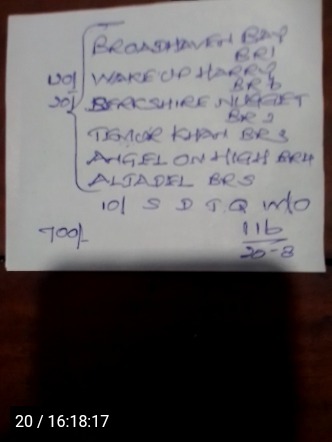 BROADHAVEN BAY
BR1
120/ WAKEUP HARRY
BR6
20/ BERKSHIRE NUGGET
BR2
TEMUR KHAN BR3
ANGEL ON HIGH BR4
ALJADEL BR5
10/ S D T Q W/O
700/- 116
20-8
20 / 16:18:17